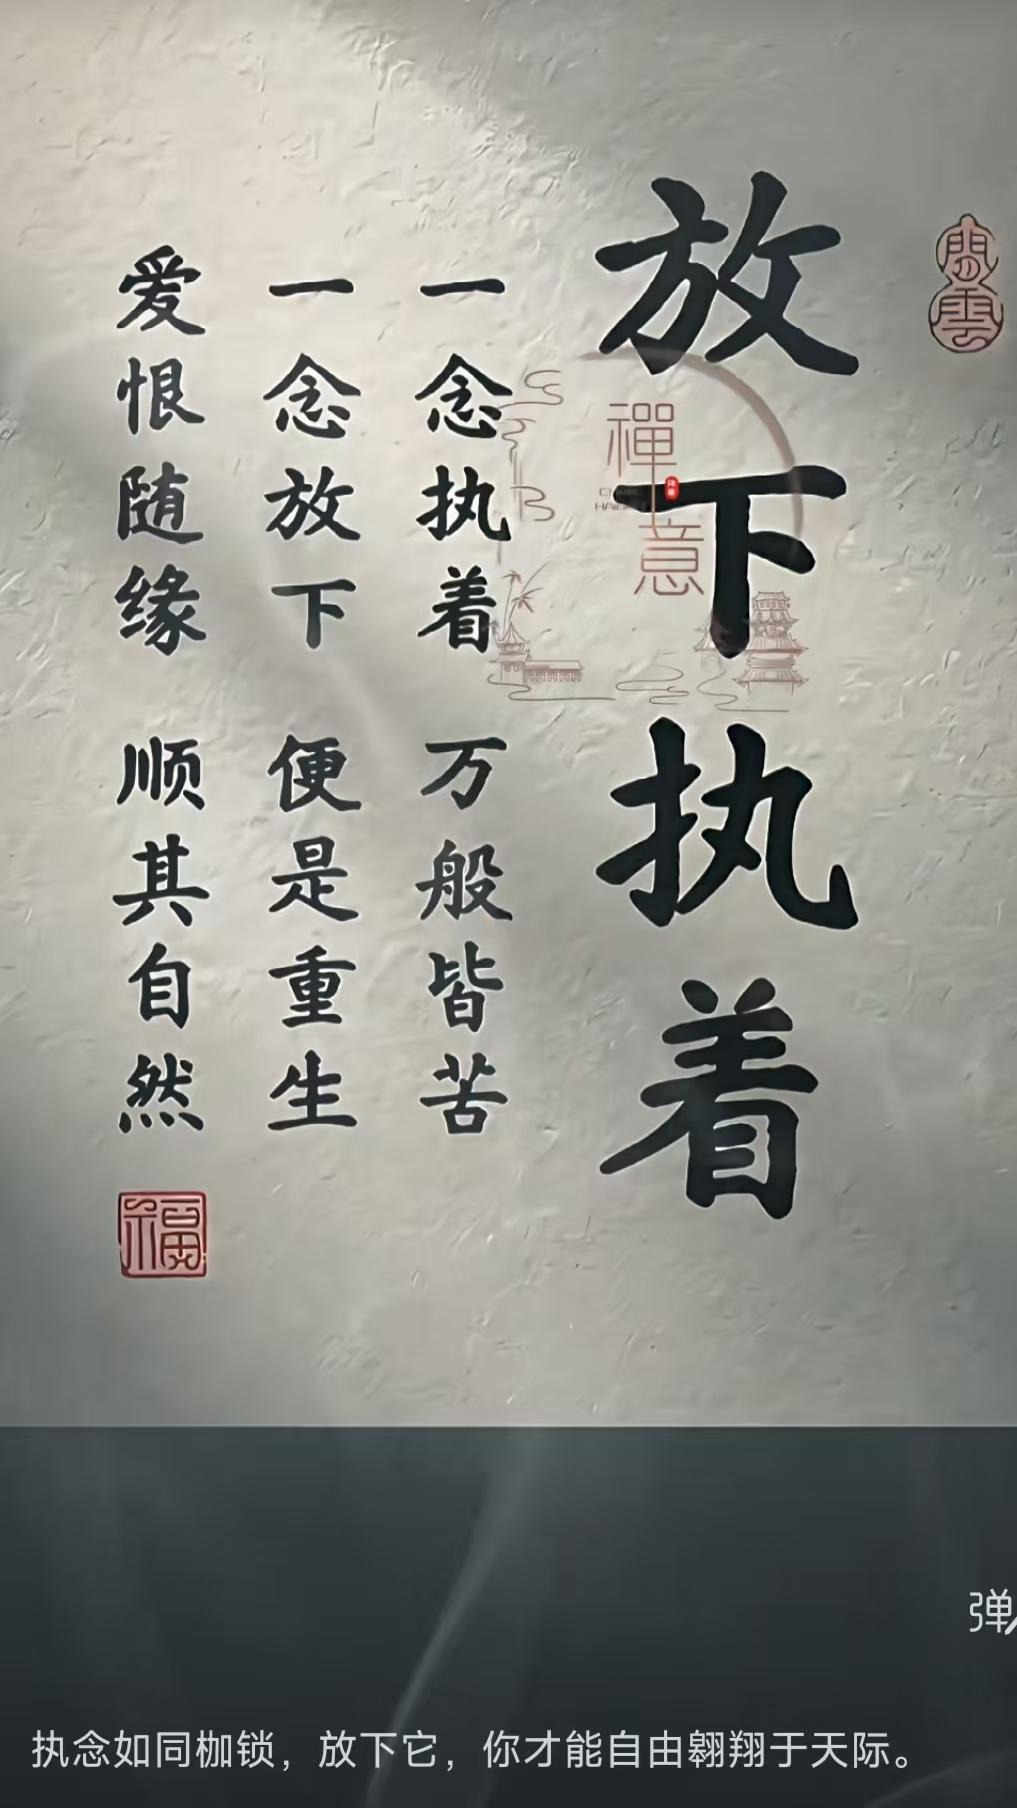 放下执着
一念执着 万般皆苦
一念放下 便是重生
爱恨随缘 顺其自然
禪意
福
弹
执念如同枷锁，放下它，你才能自由翱翔于天际。